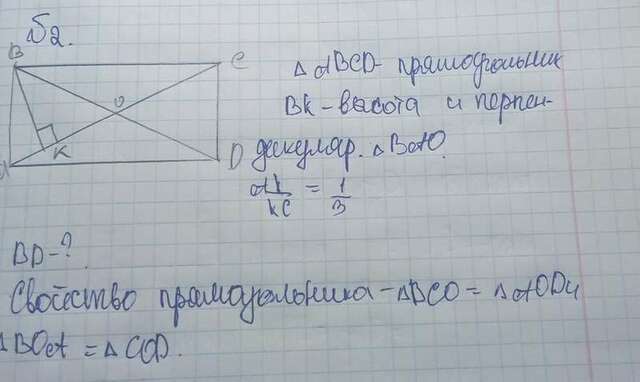 №2.
B C
O
K
A D
△ABCD - прямоугольник
BK - высота и перпен-
дикуляр. △BAO.
AK/KC = 1/3
BD - ?
Свойство прямоугольника - △BCO = △AOD и
△BOA = △COD.